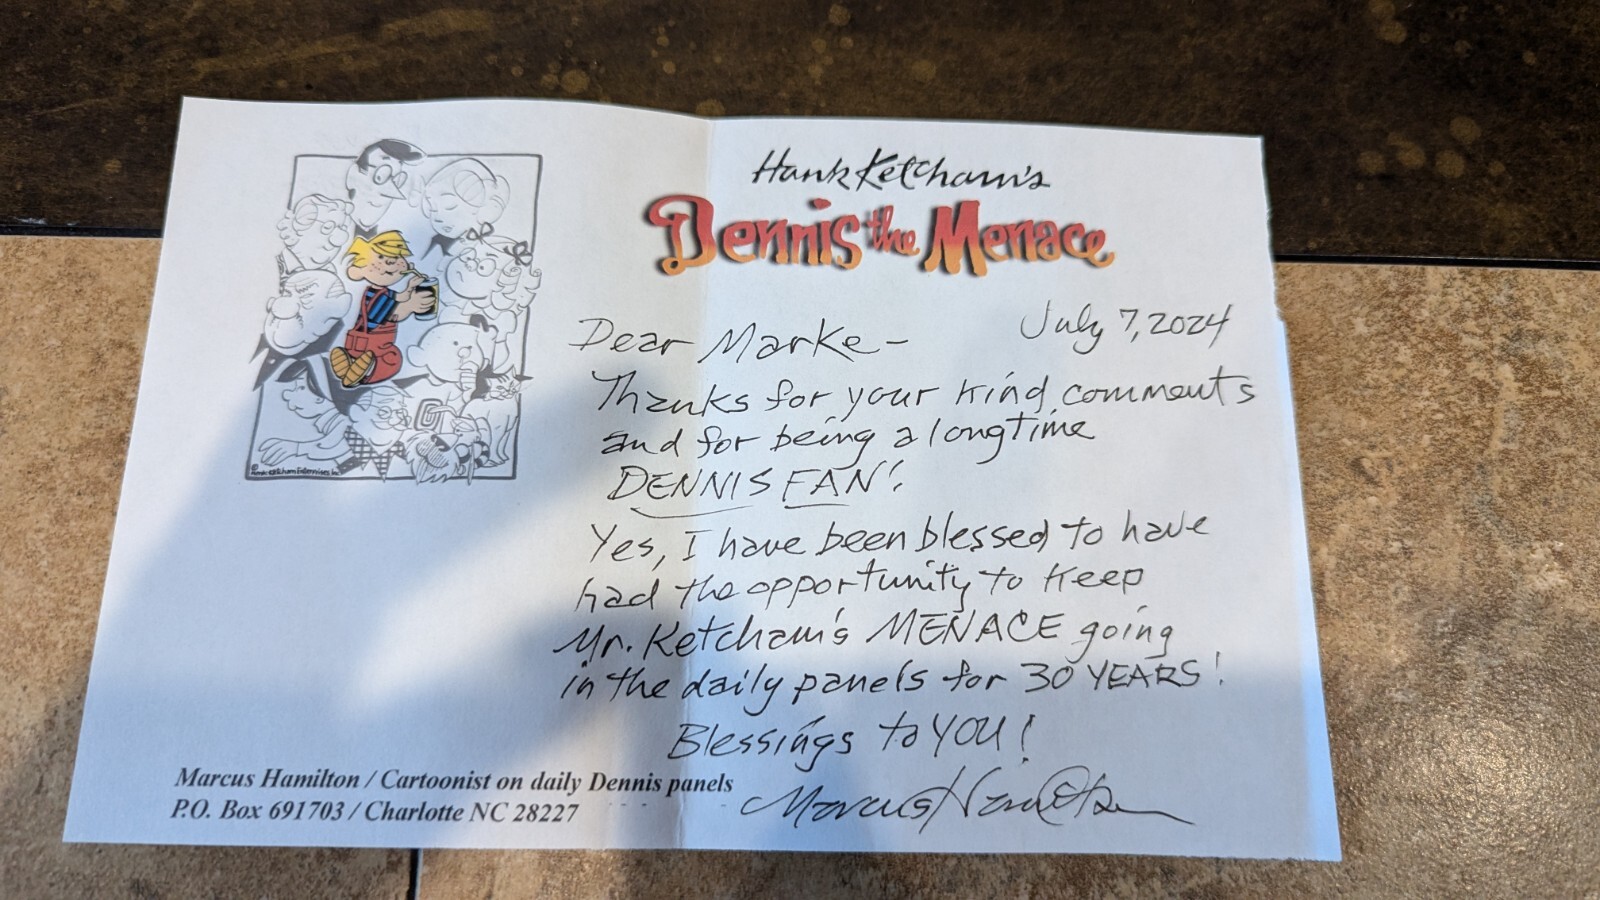 Hank Ketcham's
Dennis the Menace
July 7, 2024
Dear Marke –
Thanks for your kind comments
and for being a longtime
DENNIS FAN!
Yes, I have been blessed to have
had the opportunity to keep
Mr. Ketcham's MENACE going
in the daily panels for 30 YEARS!
Blessings to YOU!
Marcus Hamilton
© Hank Ketcham Enterprises Inc
Marcus Hamilton / Cartoonist on daily Dennis panels
P.O. Box 691703 / Charlotte NC 28227